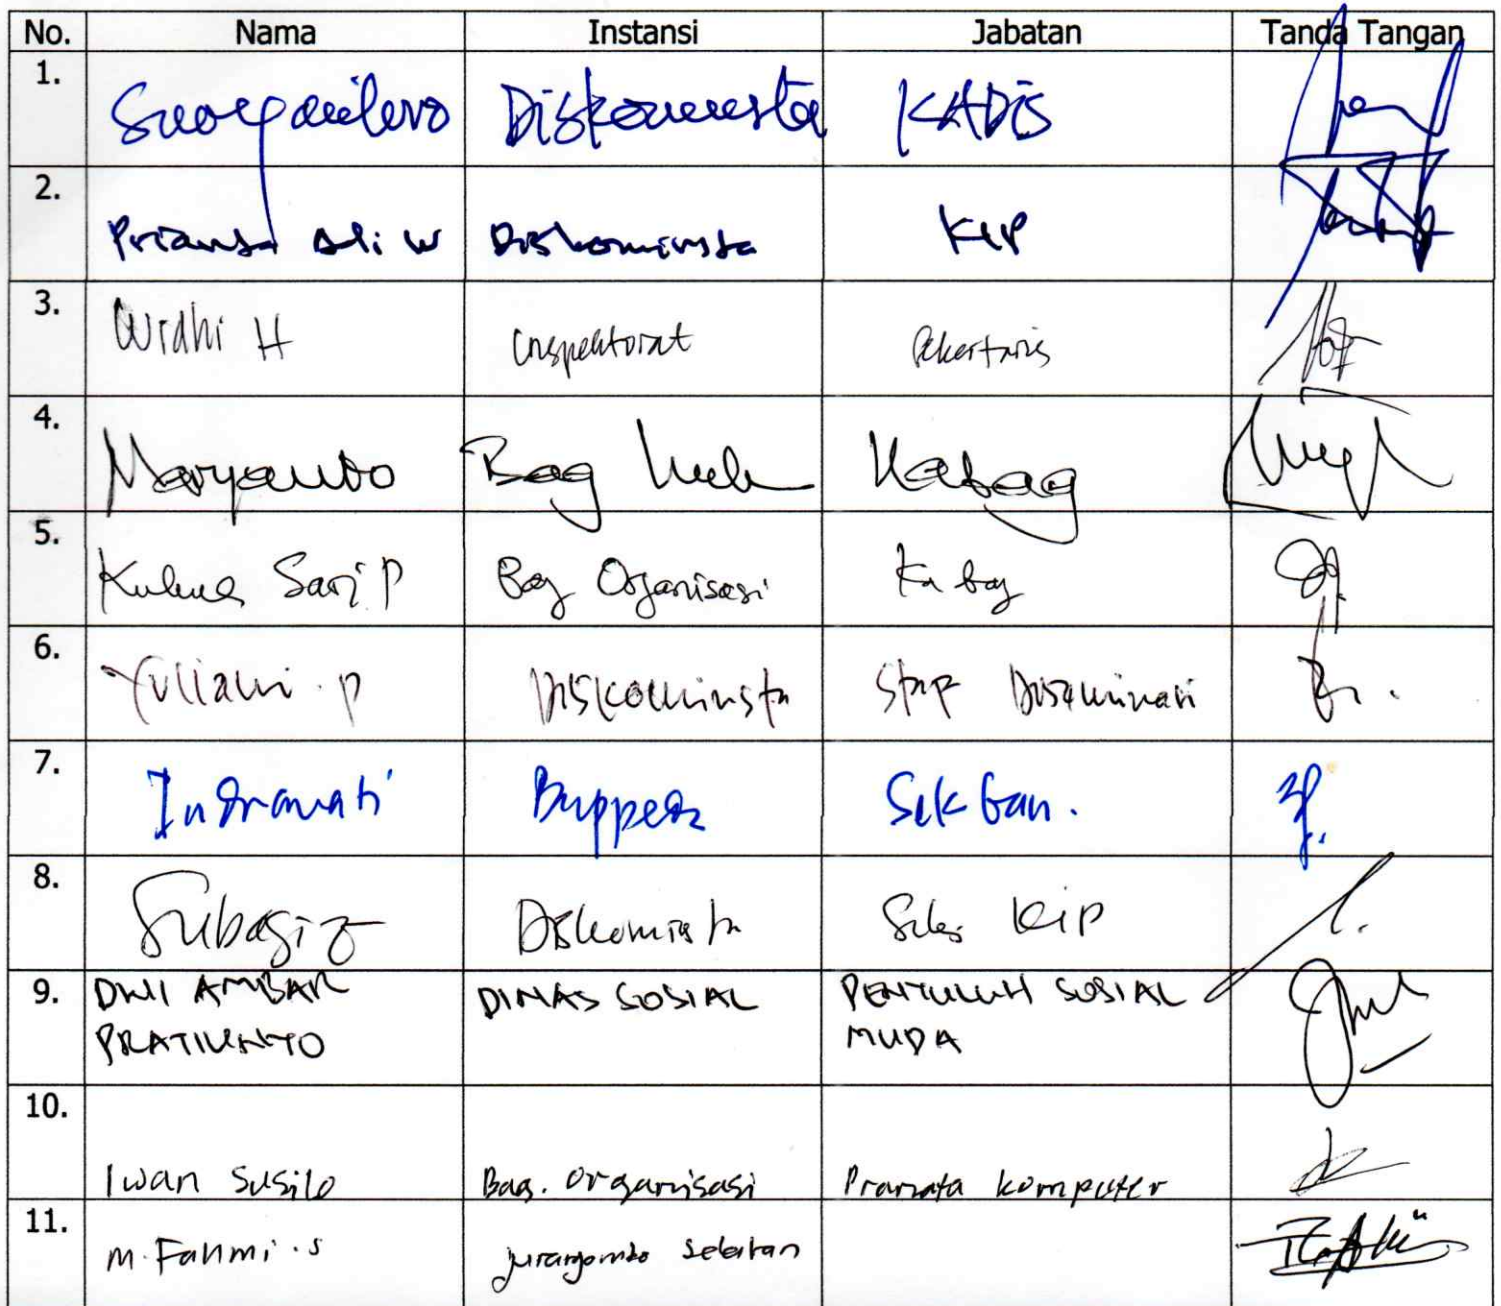 No. Nama Instansi Jabatan Tanda Tangan
1. Diskominsta KADIS
2. Prianta Adi W Diskominsta KIP
3. Widhi H Inspektorat Sekertaris
4. Maryanto Bag Huk Kabag
5. Sari P Bag Organisasi Kabag
6. Yuliani . P Diskominsta Staf Diseminasi
7. Indrawati Bappeda Sekban.
8. Subagio Diskominsta KIP
9. DWI AMBAR DINAS SOSIAL PENYULUH SOSIAL
PRATIKNTO MUDA
10. Iwan Susilo Bag. Organisasi Pranata komputer
11. M. Fahmi . S jurangombo selatan